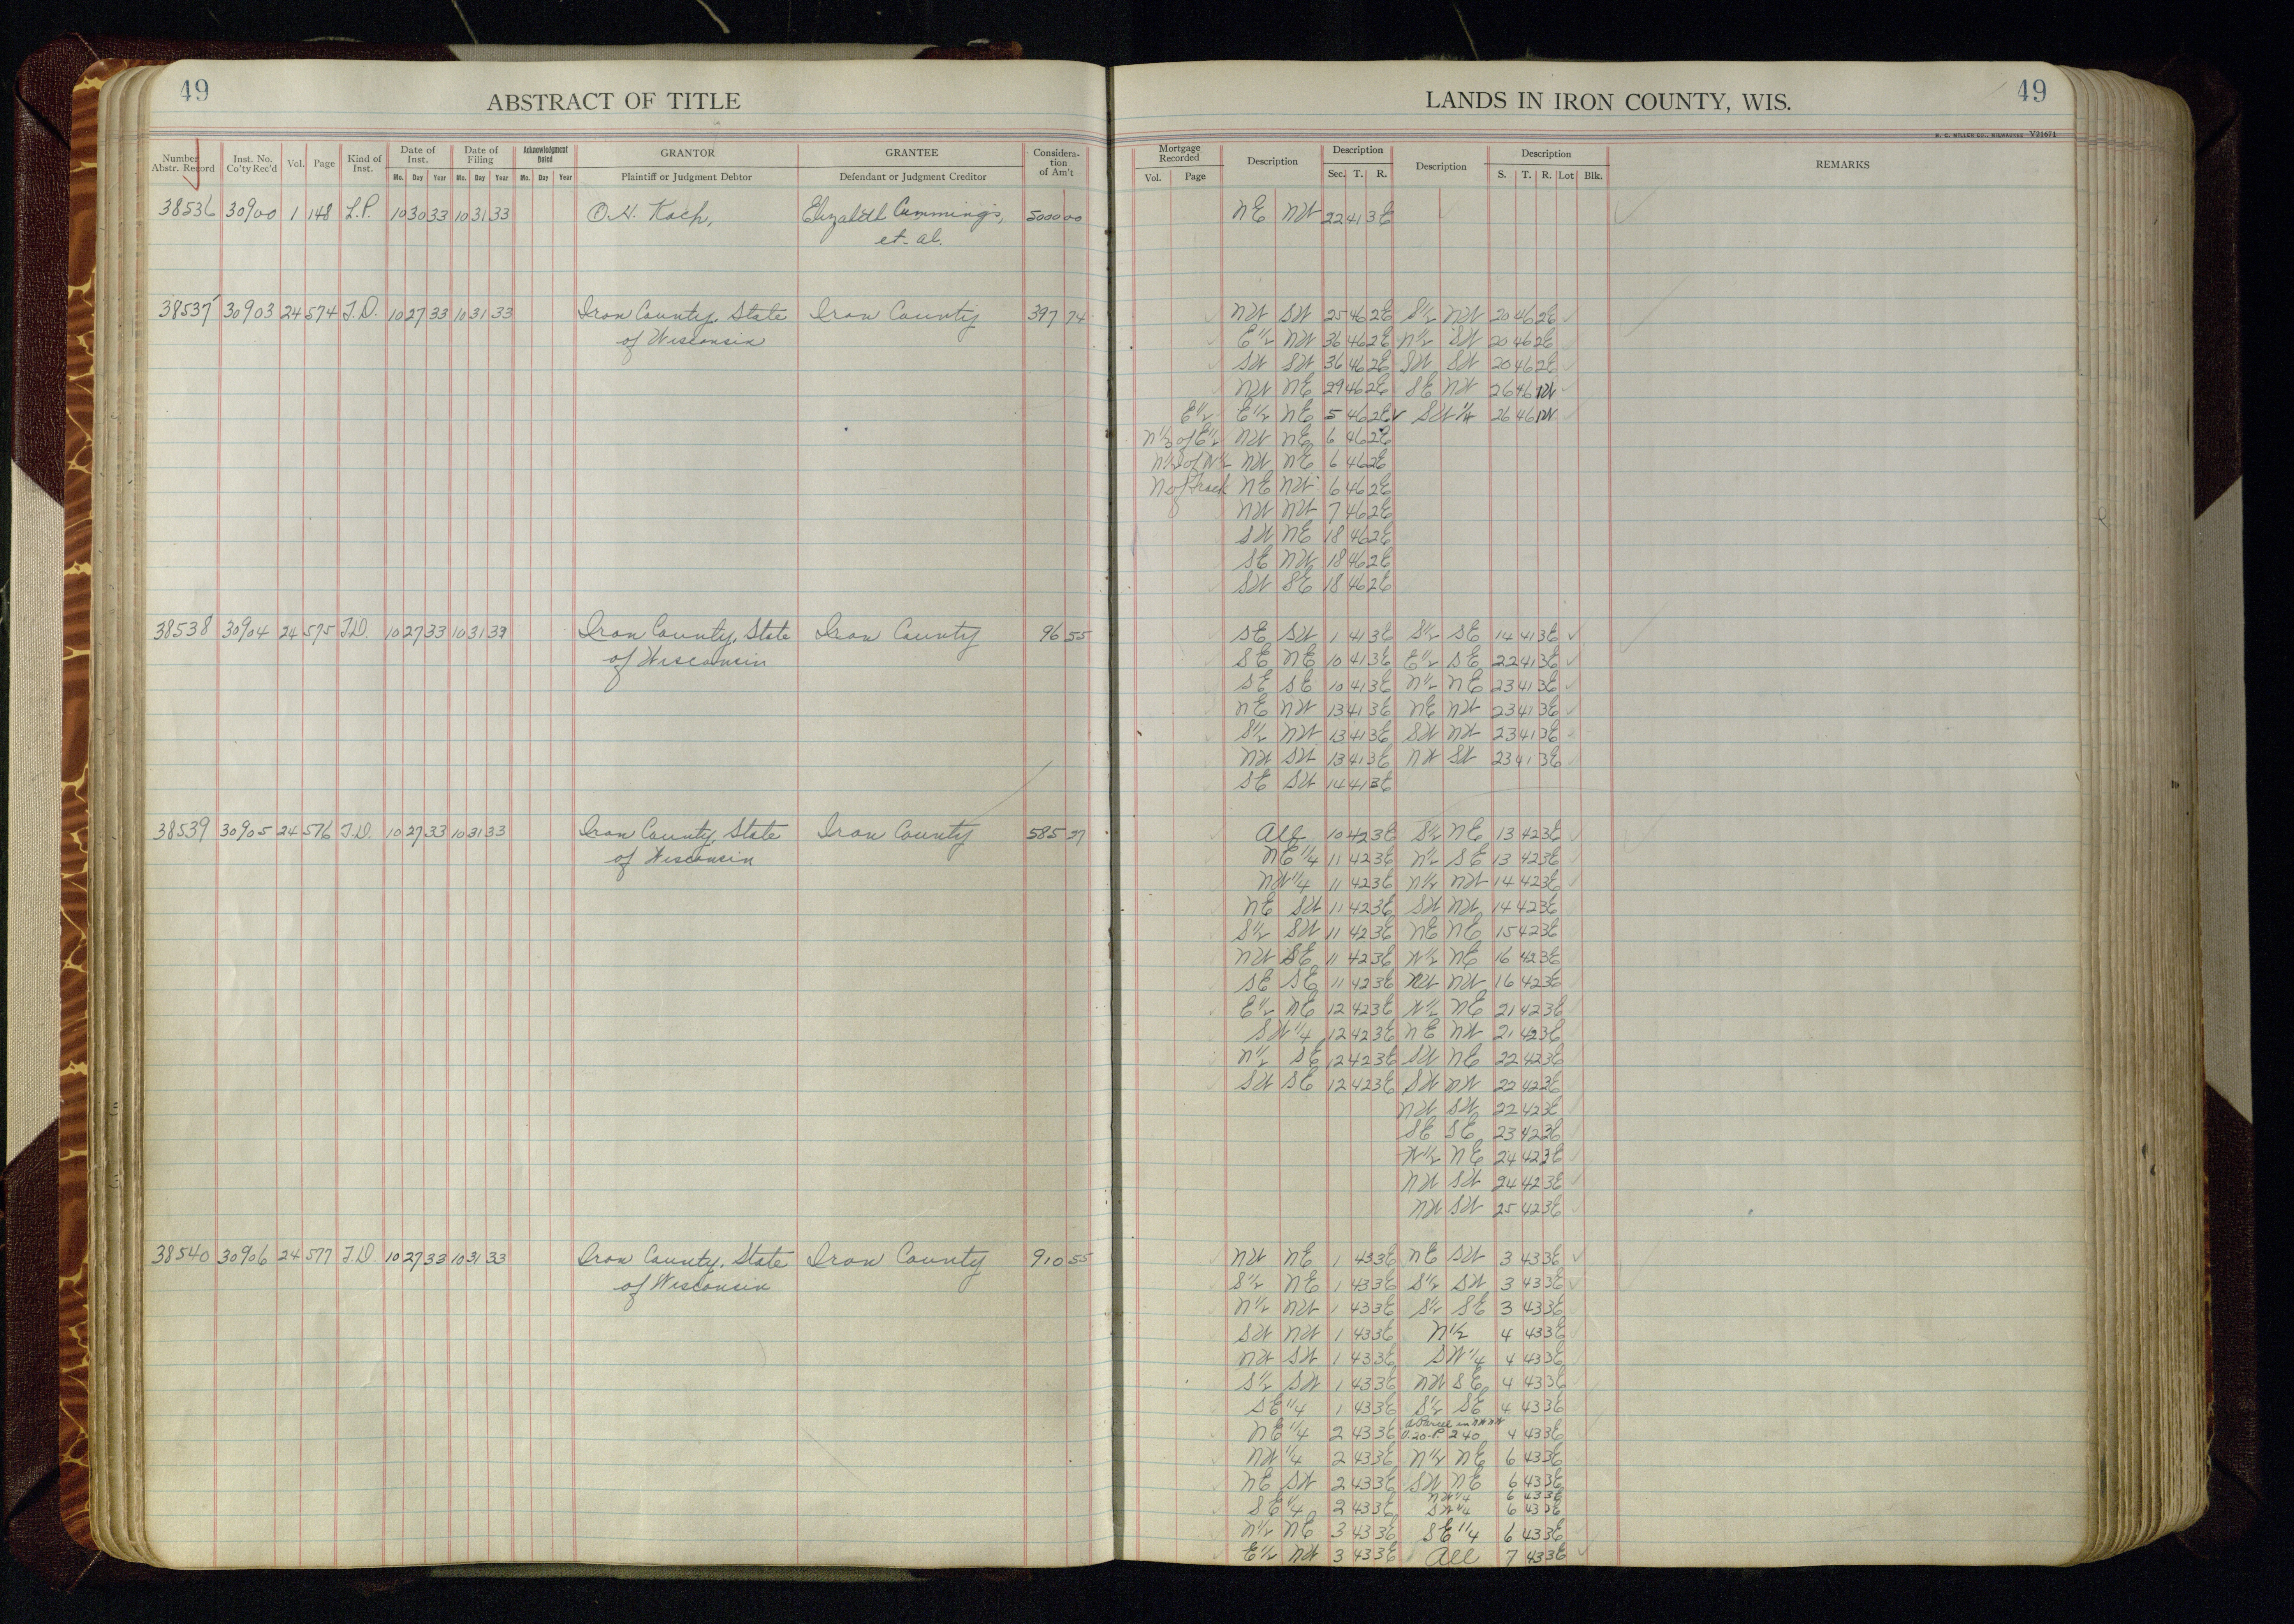 49
ABSTRACT OF TITLE
Number Abstr. Record | Inst. No. Co'ty Rec'd | Vol. | Page | Kind of Inst. | Date of Inst. Mo. Day Year | Date of Filing Mo. Day Year | Acknowledgment Dated Mo. Day Year | GRANTOR Plaintiff or Judgment Debtor | GRANTEE Defendant or Judgment Creditor | Consideration of Am't
38536 30900 1 148 L.P. 10 30 33 10 31 33 O.H. Koch, Elizabeth Cummings, 5000 00
et. al.
38537 30903 24 574 T.D. 10 27 33 10 31 33 Iron County, State Iron County 397 74
of Wisconsin
38538 30904 24 575 T.D. 10 27 33 10 31 33 Iron County, State Iron County 96 55
of Wisconsin
38539 30905 24 576 T.D. 10 27 33 10 31 33 Iron County, State Iron County 585 27
of Wisconsin
38540 30906 24 577 T.D. 10 27 33 10 31 33 Iron County, State Iron County 910 55
of Wisconsin
LANDS IN IRON COUNTY, WIS.
49
H. C. MILLER CO., MILWAUKEE V21671
Mortgage Recorded Vol. Page | Description | Description Sec. T. R. | Description | Description S. T. R. Lot Blk. | REMARKS
NE NW 22 41 3E
NW SW 25 46 2E S1/2 NW 20 46 2E
E1/2 NW 36 46 2E N1/2 SW 20 46 2E
SW SW 36 46 2E SW SW 20 46 2E
NW NE 29 46 2E SE NW 26 46 1W
E1/2 E1/2 NE 5 46 2E SW 1/4 26 46 1W
N1/2 of E1/2 NW NE 6 46 2E
N1/2 of W1/2 NW NE 6 46 2E
N of Track NE NW 6 46 2E
NW NW 7 46 2E
SW NE 18 46 2E
SE NW 18 46 2E
SW SE 18 46 2E
SE SW 1 41 3E S1/2 SE 14 41 3E
SE NE 10 41 3E E1/2 SE 22 41 3E
SE SE 10 41 3E N1/2 NE 23 41 3E
NE NW 13 41 3E NE NW 23 41 3E
S1/2 NW 13 41 3E SW NW 23 41 3E
NW SW 13 41 3E NW SW 23 41 3E
SE SW 14 41 3E
All 10 42 3E S1/2 NE 13 42 3E
NE 1/4 11 42 3E N1/2 SE 13 42 3E
NW 1/4 11 42 3E N1/2 NW 14 42 3E
NE SW 11 42 3E SW NW 14 42 3E
S1/2 SW 11 42 3E NE NE 15 42 3E
NW SE 11 42 3E W1/2 NE 16 42 3E
SE SE 11 42 3E NW NW 16 42 3E
E1/2 NE 12 42 3E W1/2 NE 21 42 3E
SW 1/4 12 42 3E NE NW 21 42 3E
N1/2 SE 12 42 3E SW NE 22 42 3E
SW SE 12 42 3E SW NW 22 42 3E
NW SW 22 42 3E
SE SE 23 42 3E
W1/2 NE 24 42 3E
NW SW 24 42 3E
NW SW 25 42 3E
NW NE 1 43 3E NE SW 3 43 3E
S1/2 NE 1 43 3E S1/2 SW 3 43 3E
N1/2 NW 1 43 3E S1/2 SE 3 43 3E
SW NW 1 43 3E N1/2 4 43 3E
NW SW 1 43 3E SW 1/4 4 43 3E
S1/2 SW 1 43 3E NW SE 4 43 3E
SE 1/4 1 43 3E S1/2 SE 4 43 3E
A Parcel in NW NW
NE 1/4 2 43 3E V.20-P. 240 4 43 3E
NW 1/4 2 43 3E N1/2 NE 6 43 3E
NE SW 2 43 3E SW NE 6 43 3E
NW 1/4 6 43 3E
SE 1/4 2 43 3E SW 1/4 6 43 3E
N1/2 NE 3 43 3E SE 1/4 6 43 3E
E1/2 NW 3 43 3E All 7 43 3E